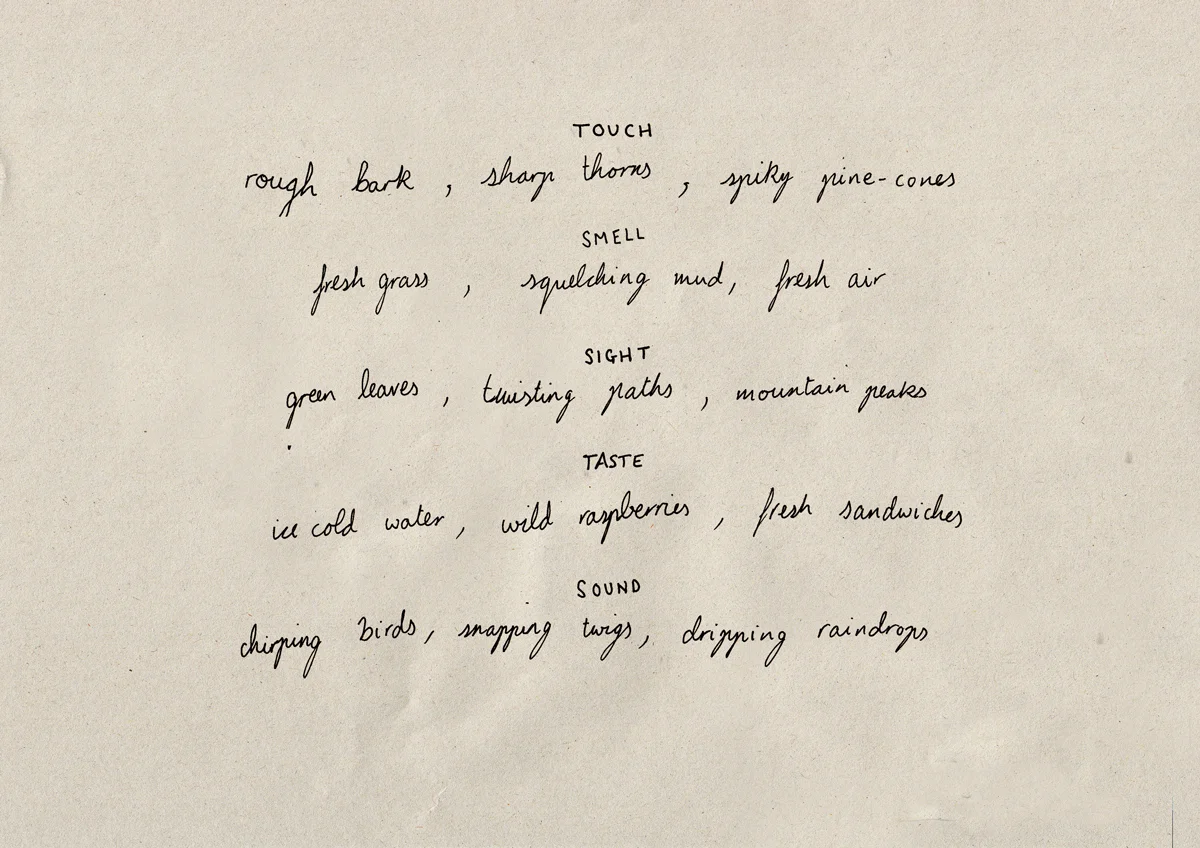 TOUCH
rough bark , sharp thorns , spiky pine-cones
SMELL
fresh grass , squelching mud, fresh air
SIGHT
green leaves , twisting paths , mountain peaks
TASTE
ice cold water , wild raspberries , fresh sandwiches
SOUND
chirping birds, snapping twigs, dripping raindrops